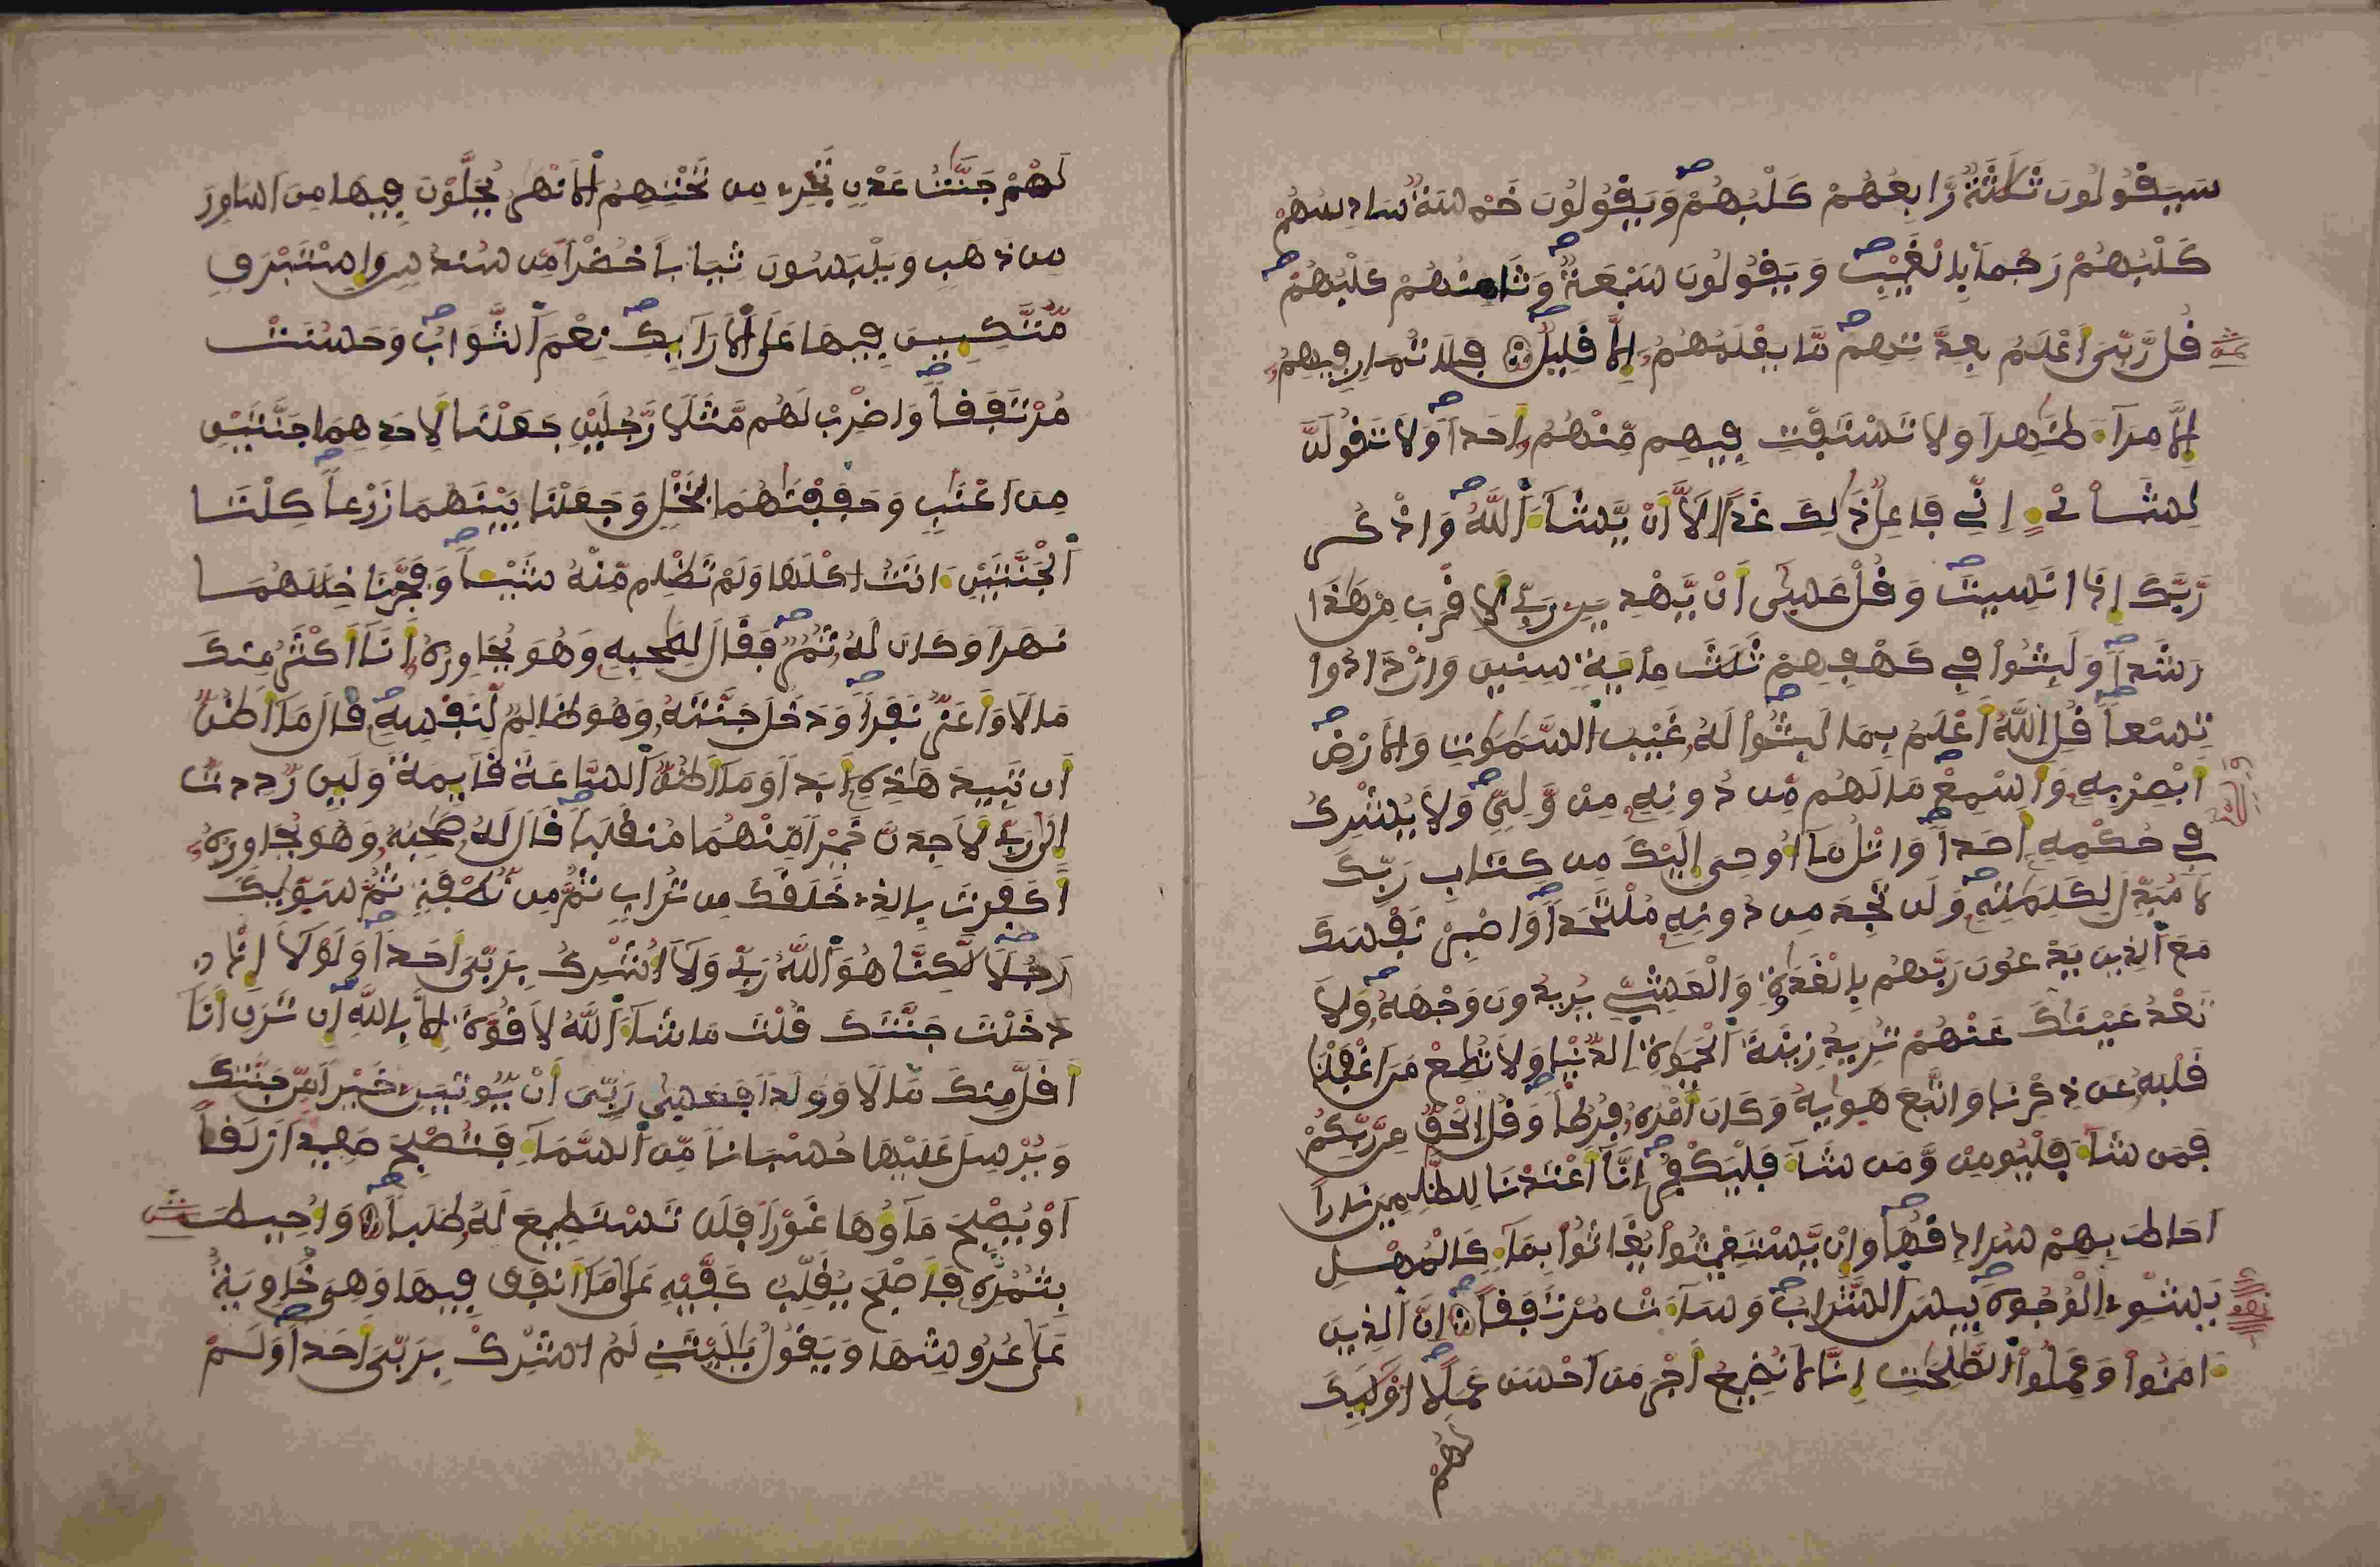 سَيَقُولُونَ ثَلَٰثَةٌ رَّابِعُهُمْ كَلْبُهُمْ وَيَقُولُونَ خَمْسَةٌ سَادِسُهُمْ
كَلْبُهُمْ رَجْماَ بِالْغَيْبِ وَيَقُولُونَ سَبْعَةٌ وَثَامِنُهُمْ كَلْبُهُمْ
قُل رَّبِّىَ أَعْلَمُ بِعِدَّتِهِم مَّا يَعْلَمُهُمُ إِلَّا قَلِيلٌ فَلَا تُمَارِ فِيهِمُ
إِلَّا مِرَآءَ ظَٰهِراَ وَلَا تَسْتَفْتِ فِيهِم مِّنْهُمُ أَحَداَ وَلَا تَقُولَنَّ
لِشَاْيْءٍ اِنِّي فَاعِلٌ ذَٰلِكَ غَداً اِلَّا أَنْ يَّشَآءَ اَللَّهُ وَاذْكُر
رَّبَّكَ إِذَا نَسِيتَ وَقُلْ عَسِىٰ أَنْ يَّهْدِيَنِ رَبِّي لِأَقْرَبَ مِنْ هَٰذَا
رَشَداَ وَلَبِثُواْ فِي كَهْفِهِمْ ثَلَٰثَ مِاْيَةٖ سِنِينَ وَازْدَادُواْ
تِسْعاَ قُلِ اِللَّهُ أَعْلَمُ بِمَا لَبِثُواْ لَهُۥ غَيْبُ السَّمَٰوَٰتِ وَالَارْضِ
أَبْصِرْ بِهِۦ وَأَسْمِعْ مَا لَهُم مِّن دُونِهِۦ مِنْ وَّلِيّٖ وَلَا يُشْرِكُ
فِي حُكْمِهِۦ أَحَداَ وَاتْلُ مَآ أُوحِىَ إِلَيْكَ مِن كِتَابِ رَبِّكَ
لَا مُبَدِّلَ لِكَلِمَٰتِهِۦ وَلَن تَجِدَ مِن دُونِهِۦ مُلْتَحَداَ وَاصْبِرْ نَفْسَكَ
مَعَ اَلذِينَ يَدْعُونَ رَبَّهُم بِالْغَدَوٰةِ وَالْعَشِيِّ يُرِيدُونَ وَجْهَهُۥ وَلَا
تَعْدُ عَيْنَٰكَ عَنْهُمْ تُرِيدُ زِينَةَ اَلْحَيَوٰةِ اِلدُّنْيَا وَلَا تُطِعْ مَنَ اَغْفَلْنَا
قَلْبَهُۥ عَن ذِكْرِنَا وَاتَّبَعَ هَوَىٰهُ وَكَانَ أَمْرُهُۥ فُرُطاَ وَقُلِ اِلْحَقُّ مِن رَّبِّكُمْ
فَمَن شَآءَ فَلْيُومِن وَّمَن شَآءَ فَلْيَكْفُرِ إِنَّآ أَعْتَدْنَا لِلظَّٰلِمِينَ نَاراً
اَحَاطَ بِهِمْ سُرَادِقُهَا وَإِنْ يَّسْتَغِيثُواْ يُغَاثُواْ بِمَآءٖ كَالْمُهْلِ
يَشْوِے اِلْوُجُوهَ بِيسَ اَلشَّرَابُ وَسَآءَتْ مُرْتَفَقاً اِنَّ اَلذِينَ
ءَامَنُواْ وَعَمِلُواْ اُلصَّٰلِحَٰتِ إِنَّا لَا نُضِيعُ أَجْرَ مَنَ اَحْسَنَ عَمَلاً اوْلَٰٓئِكَ
لَهُمْ
لَهُمْ جَنَّٰتُ عَدْنٖ تَجْرِے مِن تَحْتِهِمُ اُلَانْهَٰرُ يُحَلَّوْنَ فِيهَا مِنَ اَسَاوِرَ
مِن ذَهَبٖ وَيَلْبَسُونَ ثِيَاباً خُضْراَ مِّن سُندُسٖ وَإِسْتَبْرَقٖ
مُّتَّكِـِٕينَ فِيهَا عَلَى اَلَارَآئِكِ نِعْمَ اَلثَّوَابُ وَحَسُنَتْ
مُرْتَفَقاً وَاضْرِبْ لَهُم مَّثَلاَ رَّجُلَيْنِ جَعَلْنَا لِأَحَدِهِمَا جَنَّتَيْنِ
مِنَ اَعْنَٰبٖ وَحَفَفْنَٰهُمَا بِنَخْلٖ وَجَعَلْنَا بَيْنَهُمَا زَرْعاً كِلْتَا
اَلْجَنَّتَيْنِ ءَاتَتُ اكْلَهَا وَلَمْ تَظْلِم مِّنْهُ شَيْـٔاً وَفَجَّرْنَا خِلَٰلَهُمَا
نَهَراَ وَكَانَ لَهُۥ ثُمُرٌ فَقَالَ لِصَٰحِبِهِۦ وَهُوَ يُحَاوِرُهُۥ أَنَآ أَكْثَرُ مِنكَ
مَالاَ وَأَعَزُّ نَفَراَ وَدَخَلَ جَنَّتَهُۥ وَهُوَ ظَالِمٌ لِّنَفْسِهِۦ قَالَ مَآ أَظُنُّ
أَن تَبِيدَ هَٰذِهِۦ أَبَداَ وَمَآ أَظُنُّ اُلسَّاعَةَ قَآئِمَةَ وَلَئِن رُّدِدتُّ
إِلَىٰ رَبِّي لَأَجِدَنَّ خَيْراَ مِّنْهُمَا مُنقَلَباَ قَالَ لَهُۥ صَٰحِبُهُۥ وَهُوَ يُحَاوِرُهُۥ
أَكَفَرْتَ بِالذِے خَلَقَكَ مِن تُرَابٖ ثُمَّ مِن نُّطْفَةٖ ثُمَّ سَوَّىٰكَ
رَجُلاَ لَّٰكِنَّا هُوَ اَللَّهُ رَبِّي وَلَآ أُشْرِكُ بِرَبِّىَ أَحَداَ وَلَوْلَآ إِذ
دَخَلْتَ جَنَّتَكَ قُلْتَ مَا شَآءَ اَللَّهُ لَا قُوَّةَ إِلَّا بِاللَّهِ إِن تَرَنِ أَنَآ
أَقَلَّ مِنكَ مَالاَ وَوَلَداَ فَعَسِىٰ رَبِّىَ أَنْ يُّوتِيَنِ خَيْراَ مِّن جَنَّتِكَ
وَيُرْسِلَ عَلَيْهَا حُسْبَاناَ مِّنَ اَلسَّمَآءِ فَتُصْبِحَ صَعِيداَ زَلَقاً
اَوْ يُصْبِحَ مَآؤُهَا غَوْراَ فَلَن تَسْتَطِيعَ لَهُۥ طَلَباَ وَأُحِيطَ
بِثُمُرِهِۦ فَأَصْبَحَ يُقَلِّبُ كَفَّيْهِ عَلَىٰ مَآ أَنفَقَ فِيهَا وَهِىَ خَاوِيَةٌ
عَلَىٰ عُرُوشِهَا وَيَقُولُ يَٰلَيْتَنِي لَمُ اشْرِكْ بِرَبِّىَ أَحَداَ وَلَمْ